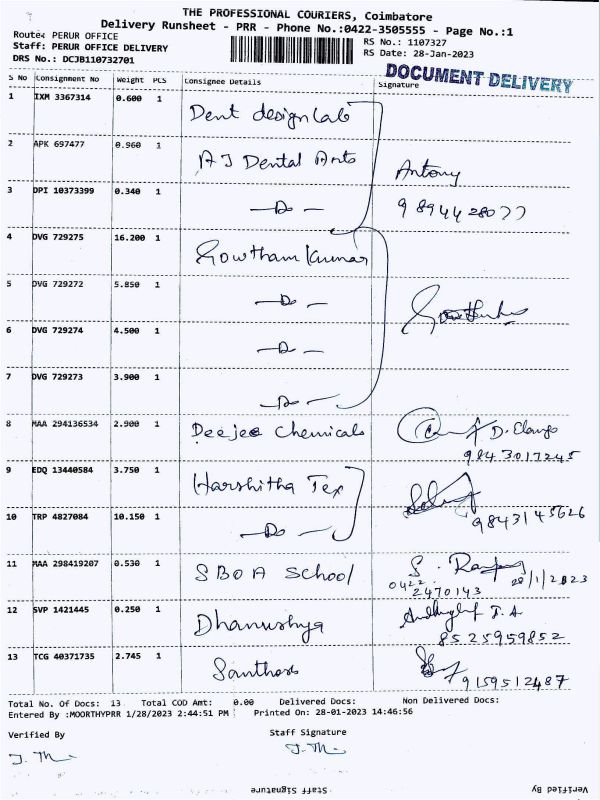 THE PROFESSIONAL COURIERS, Coimbatore
Delivery Runsheet - PRR - Phone No.:0422-3505555 - Page No.:1
Route: PERUR OFFICE
Staff: PERUR OFFICE DELIVERY
DRS No.: DCJB110732701
RS No.: 1107327
RS Date: 28-Jan-2023
DOCUMENT DELIVERY
S No Consignment No Weight PCS Consignee Details Signature
1 IXM 3367314 0.600 1 Dent design Lab
2 APK 697477 0.960 1 AJ Dental Arts Antony
3 DPI 10373399 0.340 1 —Do— 9894428077
4 DVG 729275 16.200 1 Gowtham Kumar
5 DVG 729272 5.850 1 —Do—
6 DVG 729274 4.500 1 —Do—
7 DVG 729273 3.900 1 —Do—
8 MAA 294136534 2.900 1 Deejee Chemicals D. Elango
9843017245
9 EDQ 13440584 3.750 1 Harshitha Tex
10 TRP 4827084 10.150 1 —Do— 9843145626
11 MAA 298419207 0.530 1 SBOA School S.
0422 2470143 28/1/2023
12 SVP 1421445 0.250 1 Dhanushya
8525959852
13 TCG 40371735 2.745 1 Santhosh 9159512487
Total No. Of Docs: 13 Total COD Amt: 0.00 Delivered Docs: Non Delivered Docs:
Entered By :MOORTHYPRR 1/28/2023 2:44:51 PM Printed On: 28-01-2023 14:46:56
Verified By Staff Signature
Staff Signature Verified By